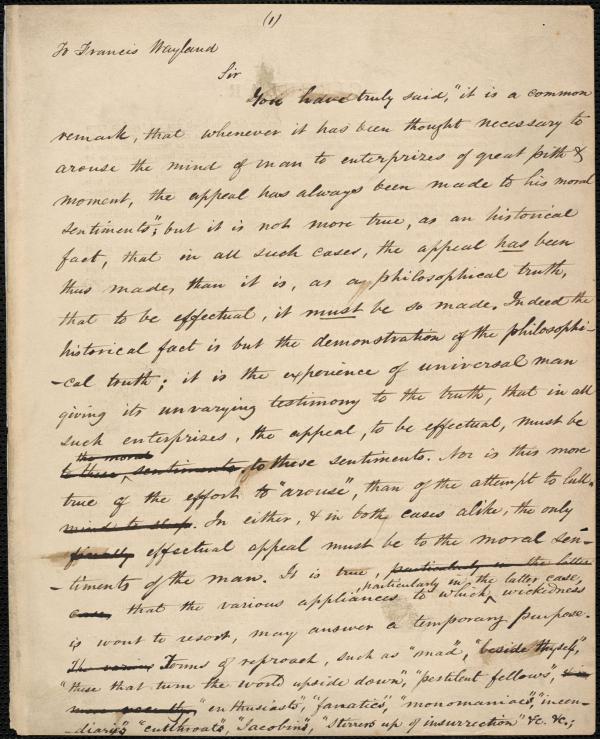 (1)
To Francis Wayland
Sir
You have truly said, "it is a common
remark, that whenever it has been thought necessary to
arouse the mind of man to enterprizes of great pith &
moment, the appeal has always been made to his moral
sentiments"; but it is not more true, as an historical
fact, that in all such cases, the appeal has been
thus made, than it is, as a philosophical truth,
that to be effectual, it must be so made. Indeed the
historical fact is but the demonstration of the philosophi-
-cal truth; it is the experience of universal man
giving its unvarying testimony to the truth, that in all
such enterprizes, the appeal, to be effectual, must be
the moral
to these sentiments, to these sentiments. Nor is this more
true of the effort to "arouse", than of the attempt to lull.
mind to sleep. In either, & in both cases alike, the only
effectual appeal must be to the moral sen-
-timents of the man. It is true, particularly in the latter
particularly in the latter case,
case, that the various appliances to which wickedness
is wont to resort, may answer a temporary purpose.
The various Forms of reproach, such as "mad", "beside thyself",
"these that turn the world upside down", "pestilent fellows",
more recently, "enthusiasts", "fanatics", "monomaniacs", "incen-
-diarys", "cutthroats", "Jacobins", "Stirrers up of insurrection" &c. &c.;